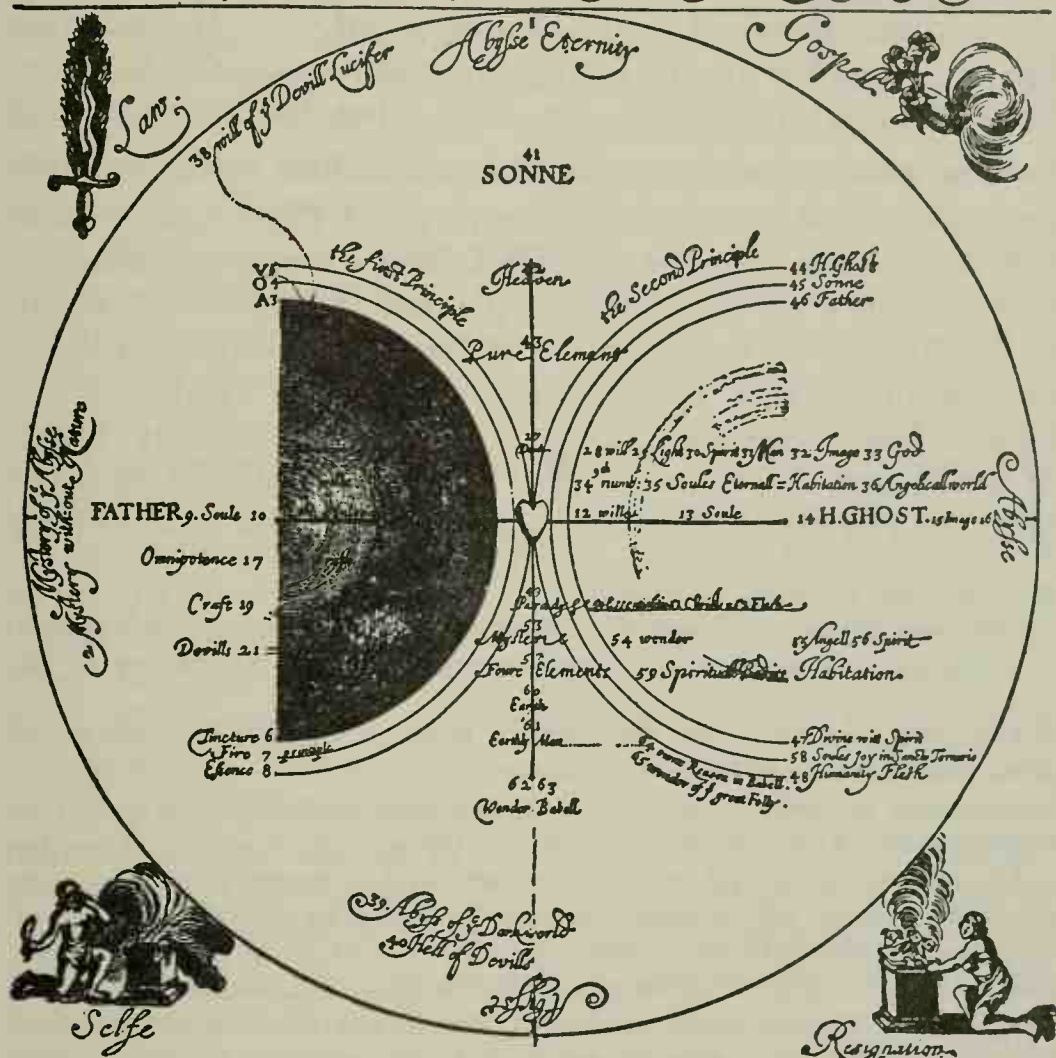 Abysse Eternity
Gospel
Law.
38 will of yᵉ Devill Lucifer
41
SONNE
the first Principle
the Second Principle
Heaven
O 4
A 3
44 H. Ghost
45 Sonne
46 Father
43
Pure Element
27
28 will 29 Light 30 Spirit 31 Man 32 Image 33 God
34 numb: 35 Soules Eternall = Habitation 36 Angelicall world
FATHER 9. Soule 10
12 will
13 Soule
14 H. GHOST. 15 Image 16
Abysse
Mystery without Nature
Omnipotence 17
Craft 19
Devills 21
Paradise
53
Mysterie
54 wonder
55 Angell 56 Spirit
Foure Elements
59 Spirituall
Habitation
60
Earth
61
Earthly Man
Tincture 6
Fire 7 principle
Essence 8
47 Divine will Spirit
58 Soules Joy in Sancto Ternario
48 Humanity Flesh
64 owne Reason in Babell.
65 wonder of yᵉ great Folly.
62 63
Wonder Babell
39. Abyss of yᵉ Darkworld
40 Hell of Devills
Abyss
Selfe
Resignation